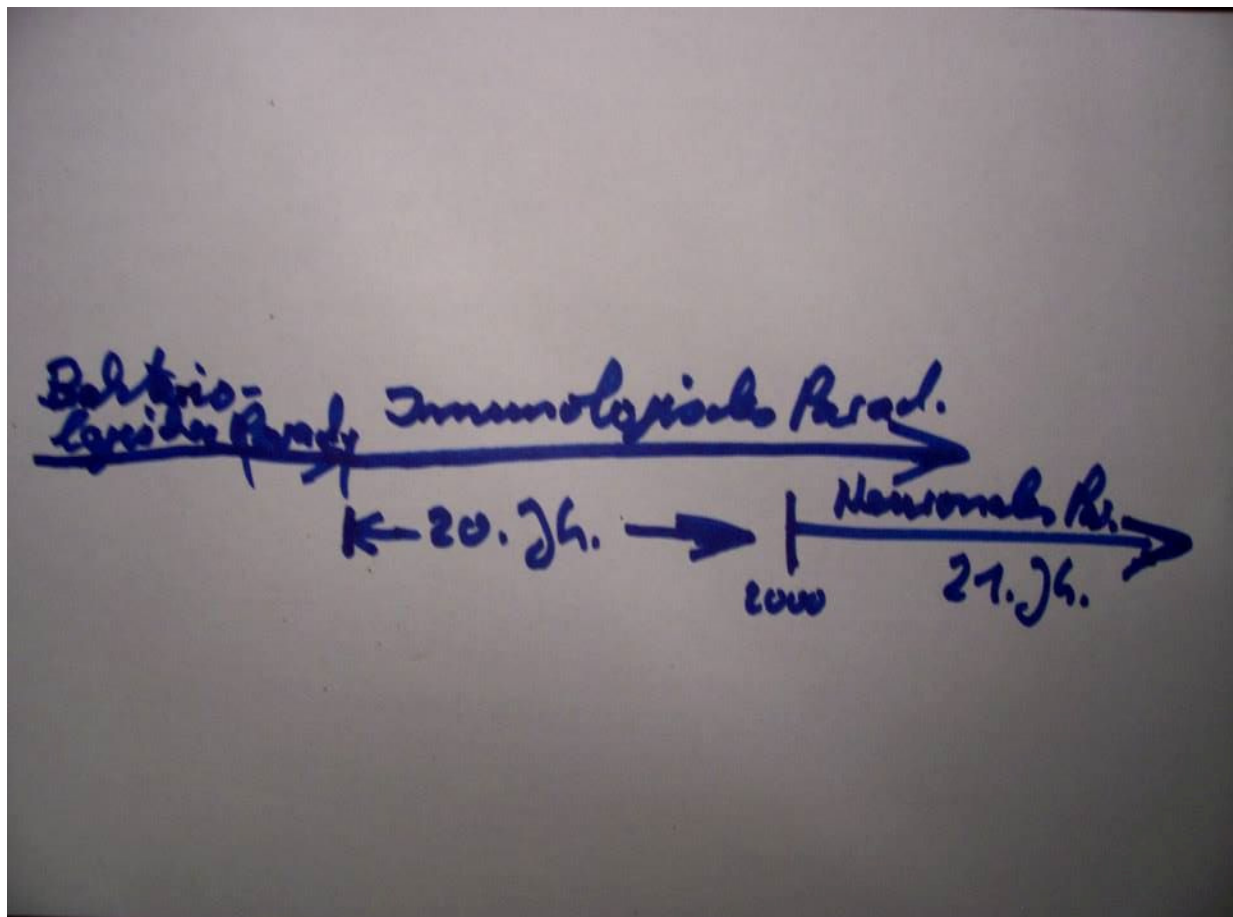 Bakterio-
logisches Parad.
Immunologisches Parad.
Neuronales Par.
20. Jh.
21. Jh.
2000